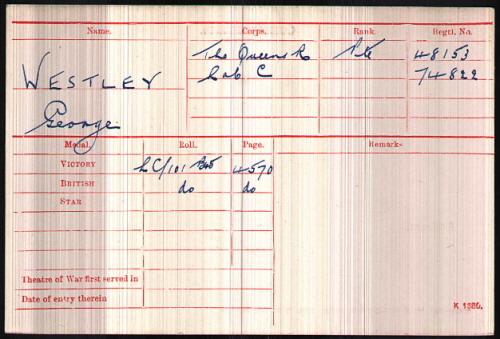 Name. Corps. Rank Regtl. No.
WESTLEY The Queens R Pte 48153
Lab C 74822
George
Medal. Roll. Page. Remarks
VICTORY LC/101 4570
BRITISH do do
STAR
Theatre of War first served in
Date of entry therein
K 1380.